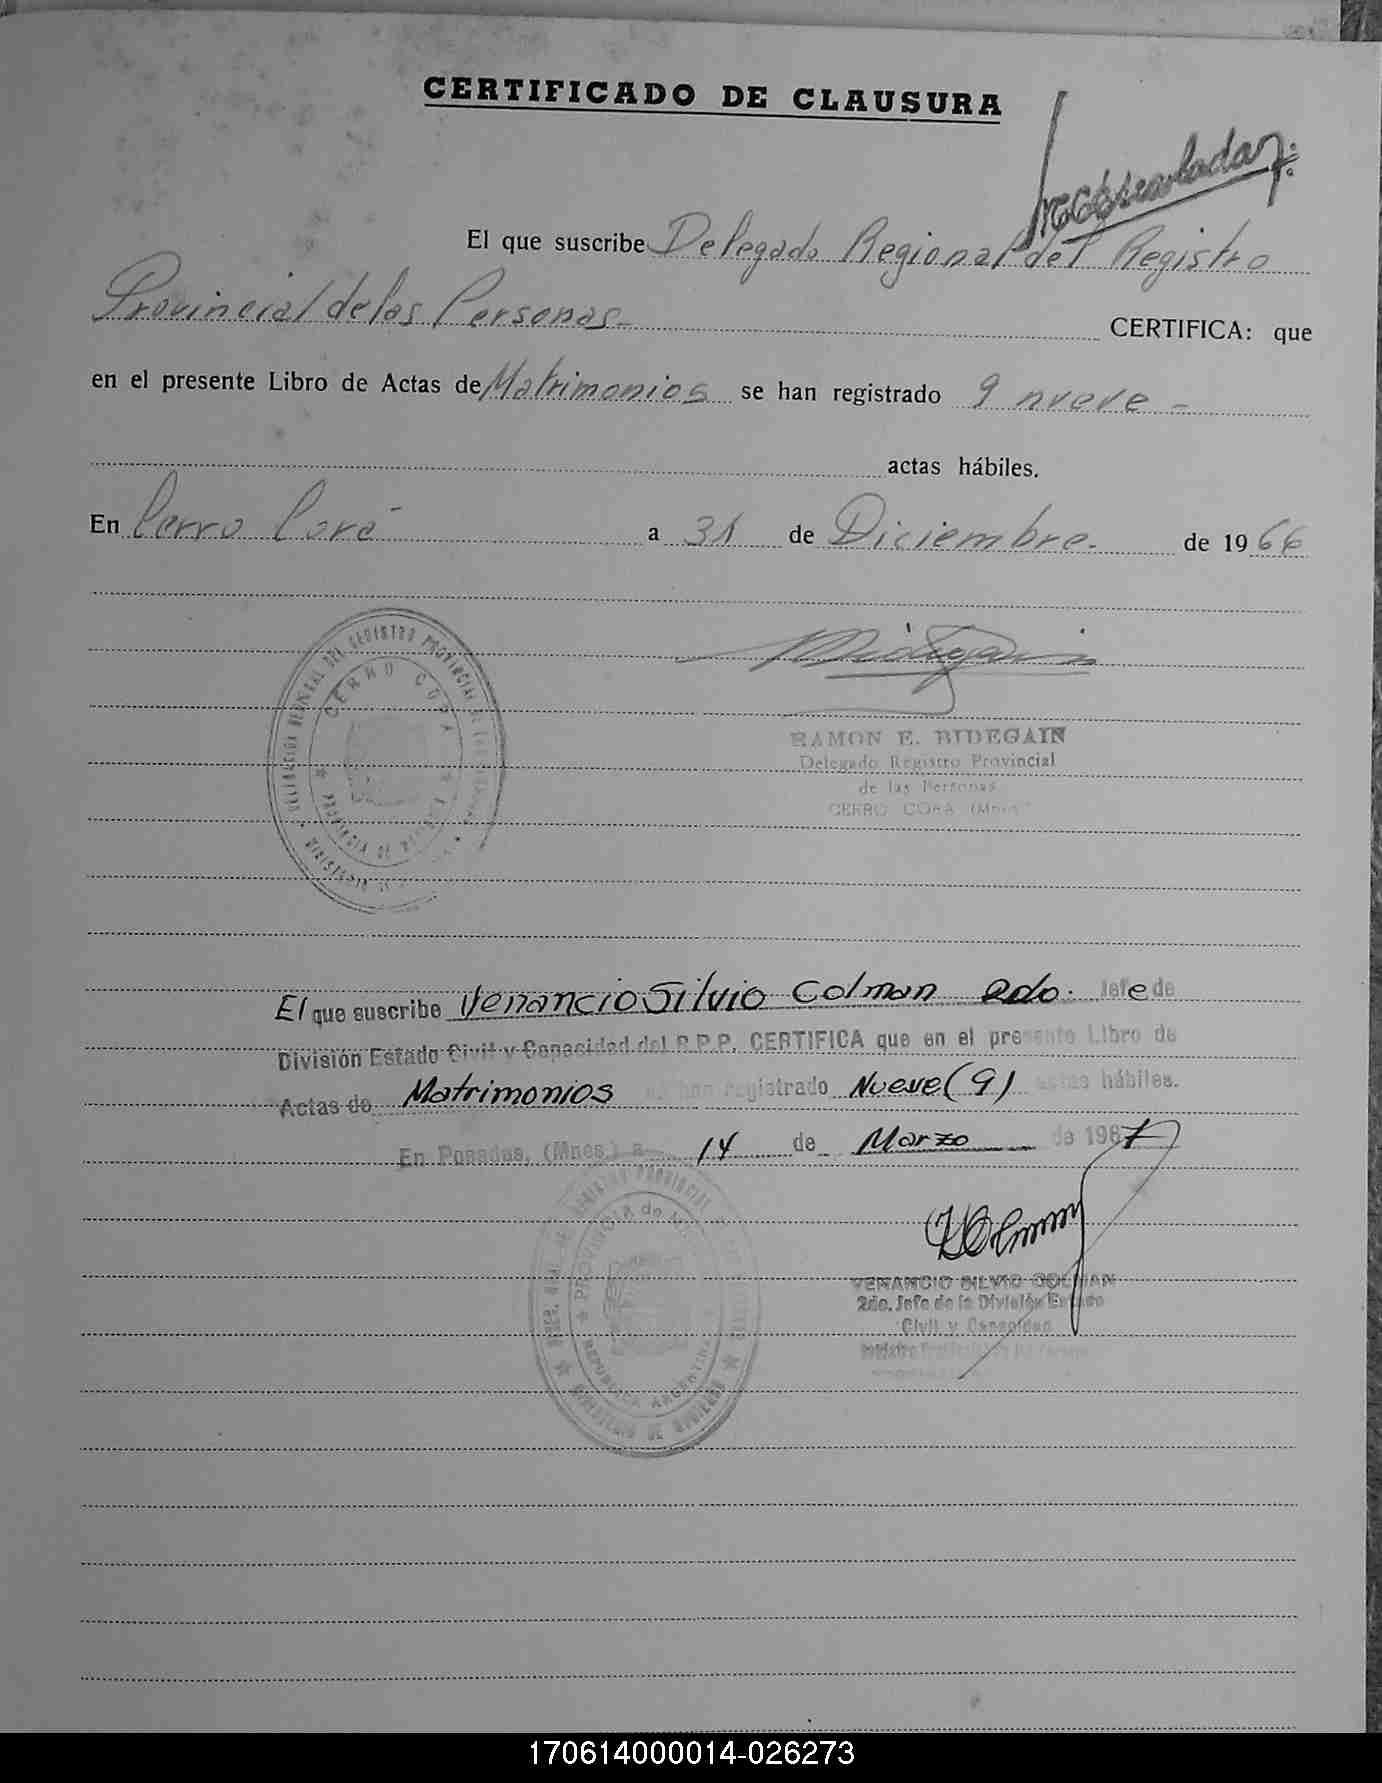 CERTIFICADO DE CLAUSURA
El que suscribe Delegado Regional del Registro
Provincial de las Personas CERTIFICA: que
en el presente Libro de Actas de Matrimonios se han registrado 9 nueve -
actas hábiles.
En Cerro Corá a 31 de Diciembre. de 1966
DELEGACION REGIONAL DEL REGISTRO PROVINCIAL DE LAS PERSONAS
CERRO CORA
PROVINCIA DE
RAMON E. BIDEGAIN
Delegado Registro Provincial
de las Personas
CERRO CORA (Mnes)
El que suscribe Venancio Silvio Colman 2do. Jefe de
División Estado Civil y Capacidad del R.P.P. CERTIFICA que en el presente Libro de
Actas de Matrimonios se han registrado Nueve (9) actas hábiles.
En Posadas, (Mnes.) a 14 de Marzo de 1967
REGISTRO PROVINCIAL DE LAS PERSONAS
PROVINCIA de
REPUBLICA ARGENTINA
MINISTERIO DE GOBIERNO
VENANCIO SILVIO COLMAN
2do. Jefe de la División Estado
Civil y Capacidad
170614000014-026273